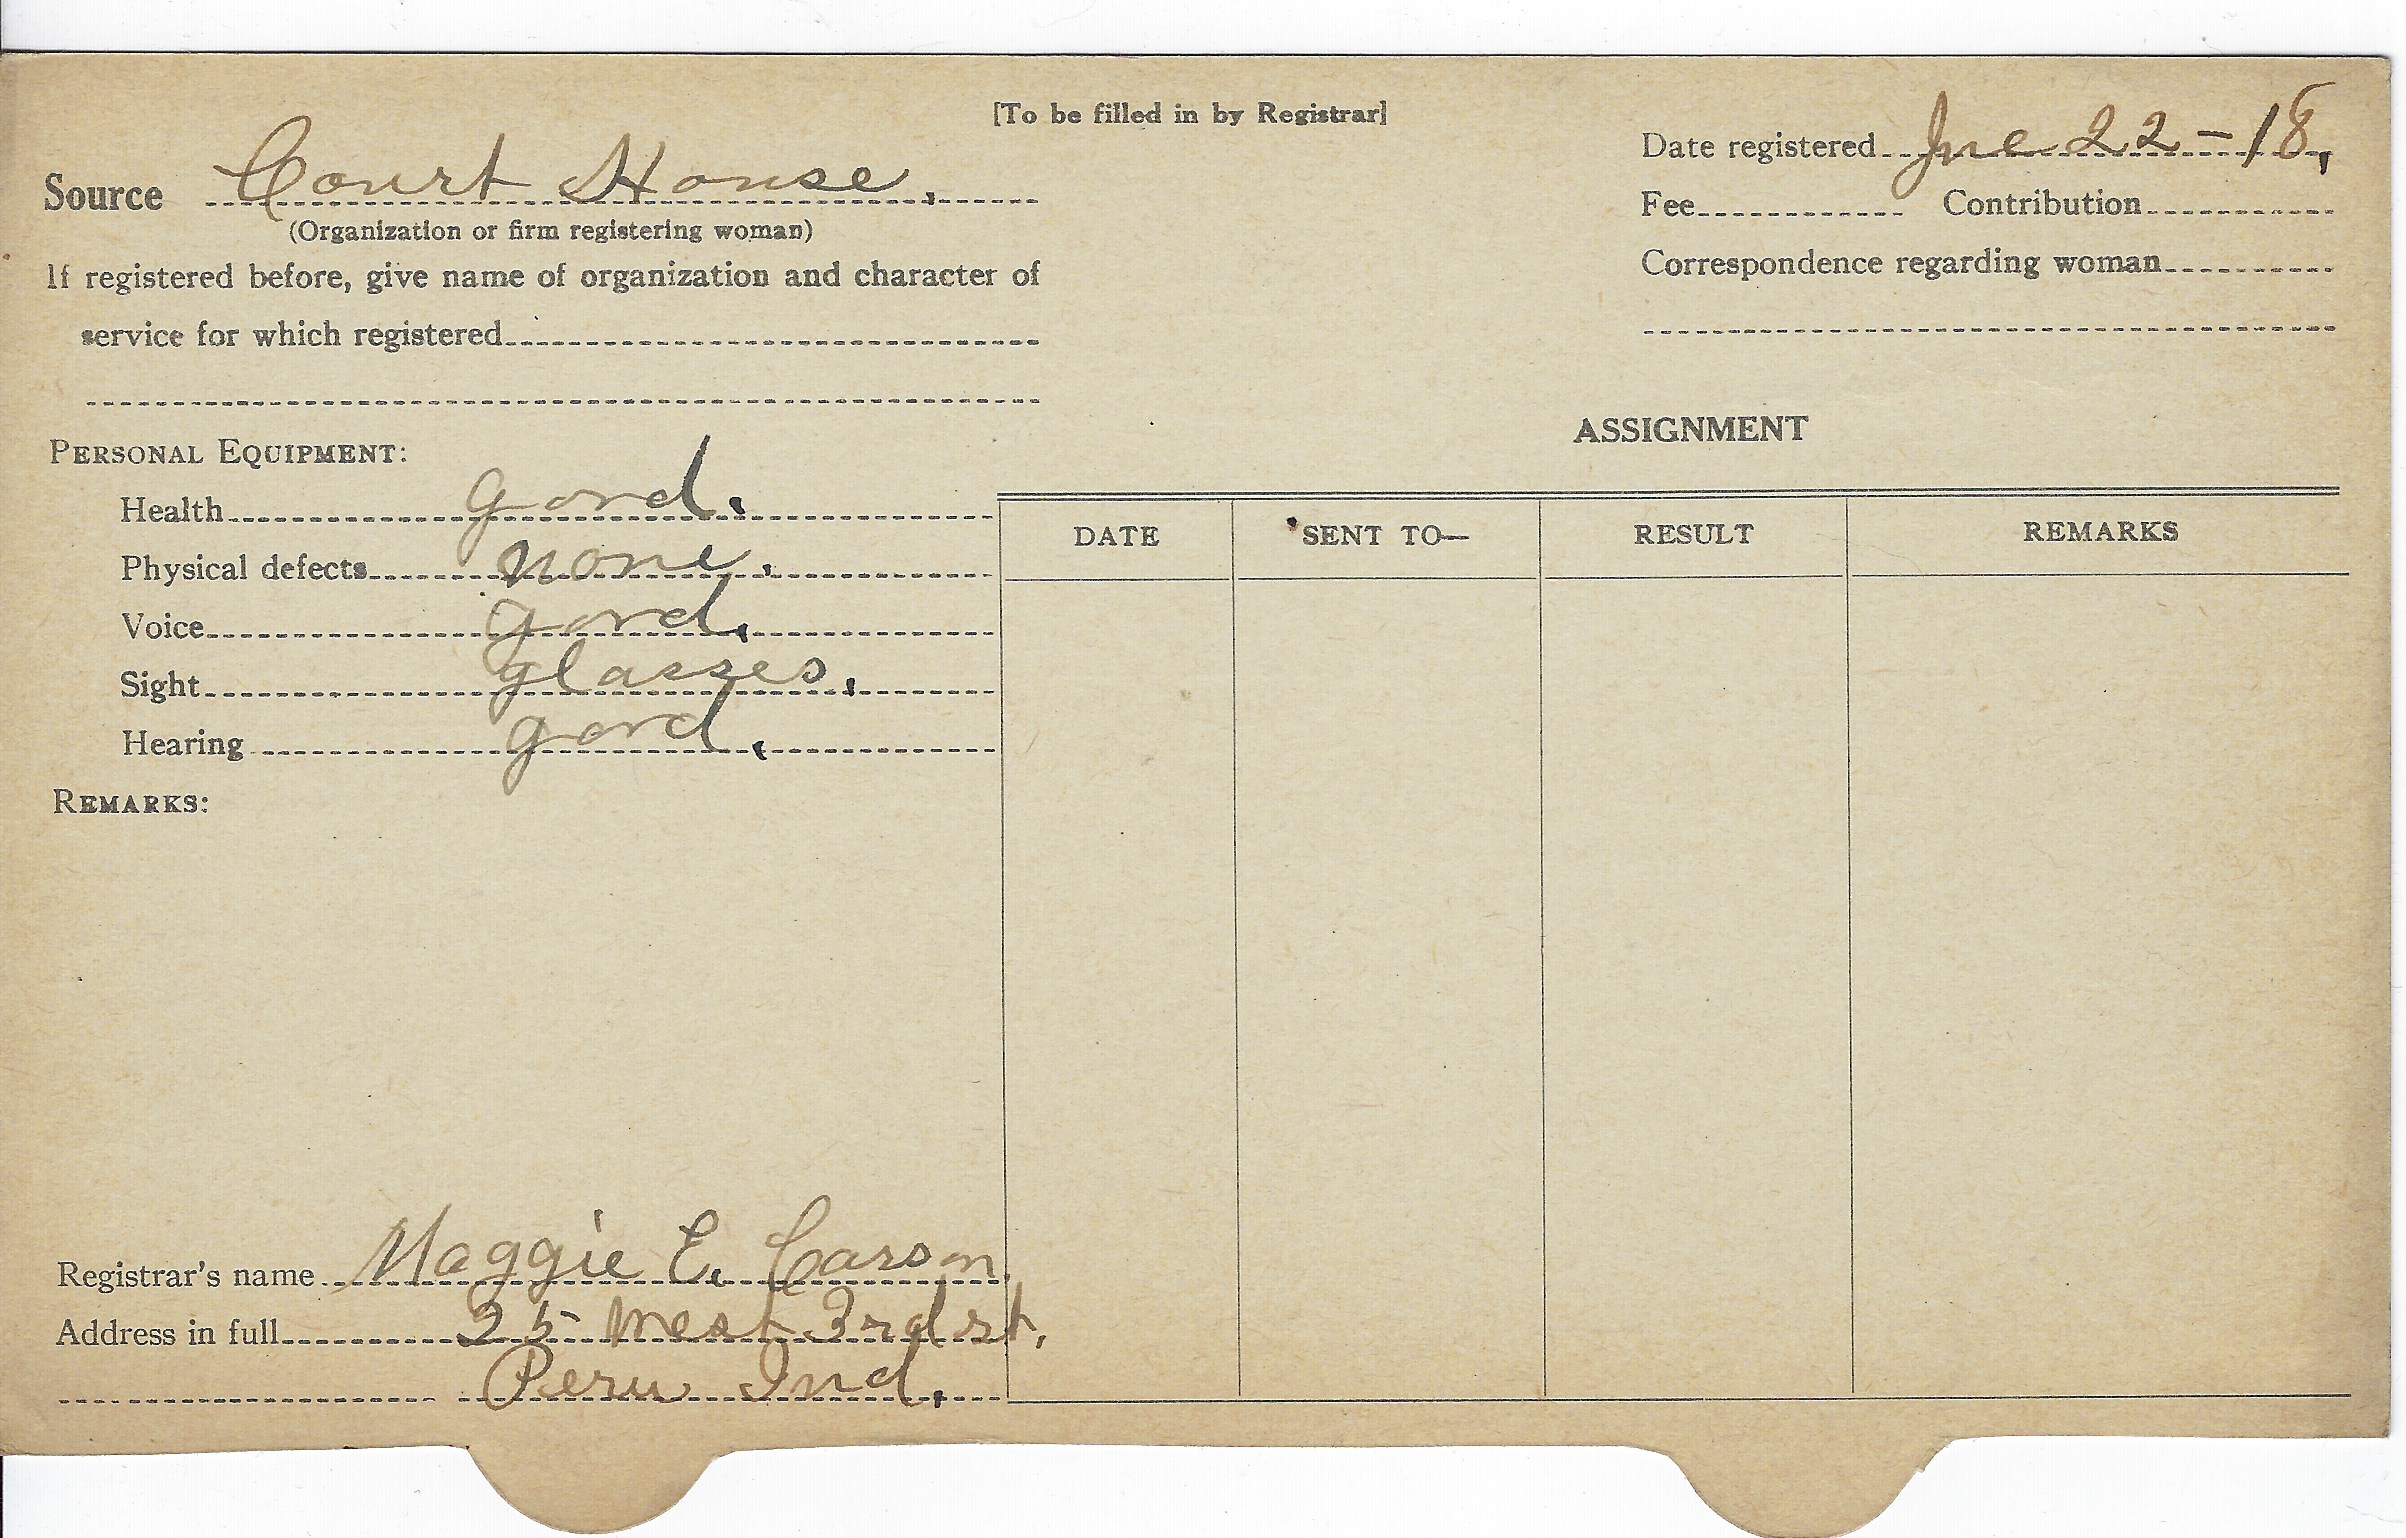 [To be filled in by Registrar]
Source Court House.
(Organization or firm registering woman)
If registered before, give name of organization and character of
service for which registered
Date registered Jne 22-18,
Fee Contribution
Correspondence regarding woman
PERSONAL EQUIPMENT:
Health good.
Physical defects none.
Voice good.
Sight glasses.
Hearing good.
REMARKS:
ASSIGNMENT
DATE SENT TO— RESULT REMARKS
Registrar's name Maggie E. Carson
Address in full 25 West 3rd st,
Peru Ind.